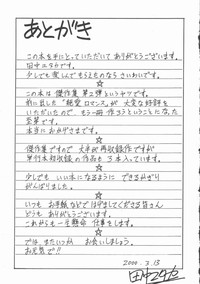 あとがき
この本を手にとっていただいてありがとうございます。
田中ユタカです。
少しでも楽しんでもらえたならさいわいです。
☆
この本は傑作集第二弾というヤツです。
前に出した「初愛ロマンス」が大変な好評を
いただいたので もう一冊作ろうということになった
企画です。
本当におかげさまです。
☆
傑作集ですので 大半が再収録作ですが
単行本初収録の作品も3本入っています。
☆
少しでもいい本になるように できるかぎり
がんばりました。
☆
いつもお手紙などではげましてくださる皆さん
どうもありがとうございます。
これからも一生懸命仕事をします。
☆
では またいつか お会いしましょう。
お元気で!!
2000.3.13
田中ユタカ